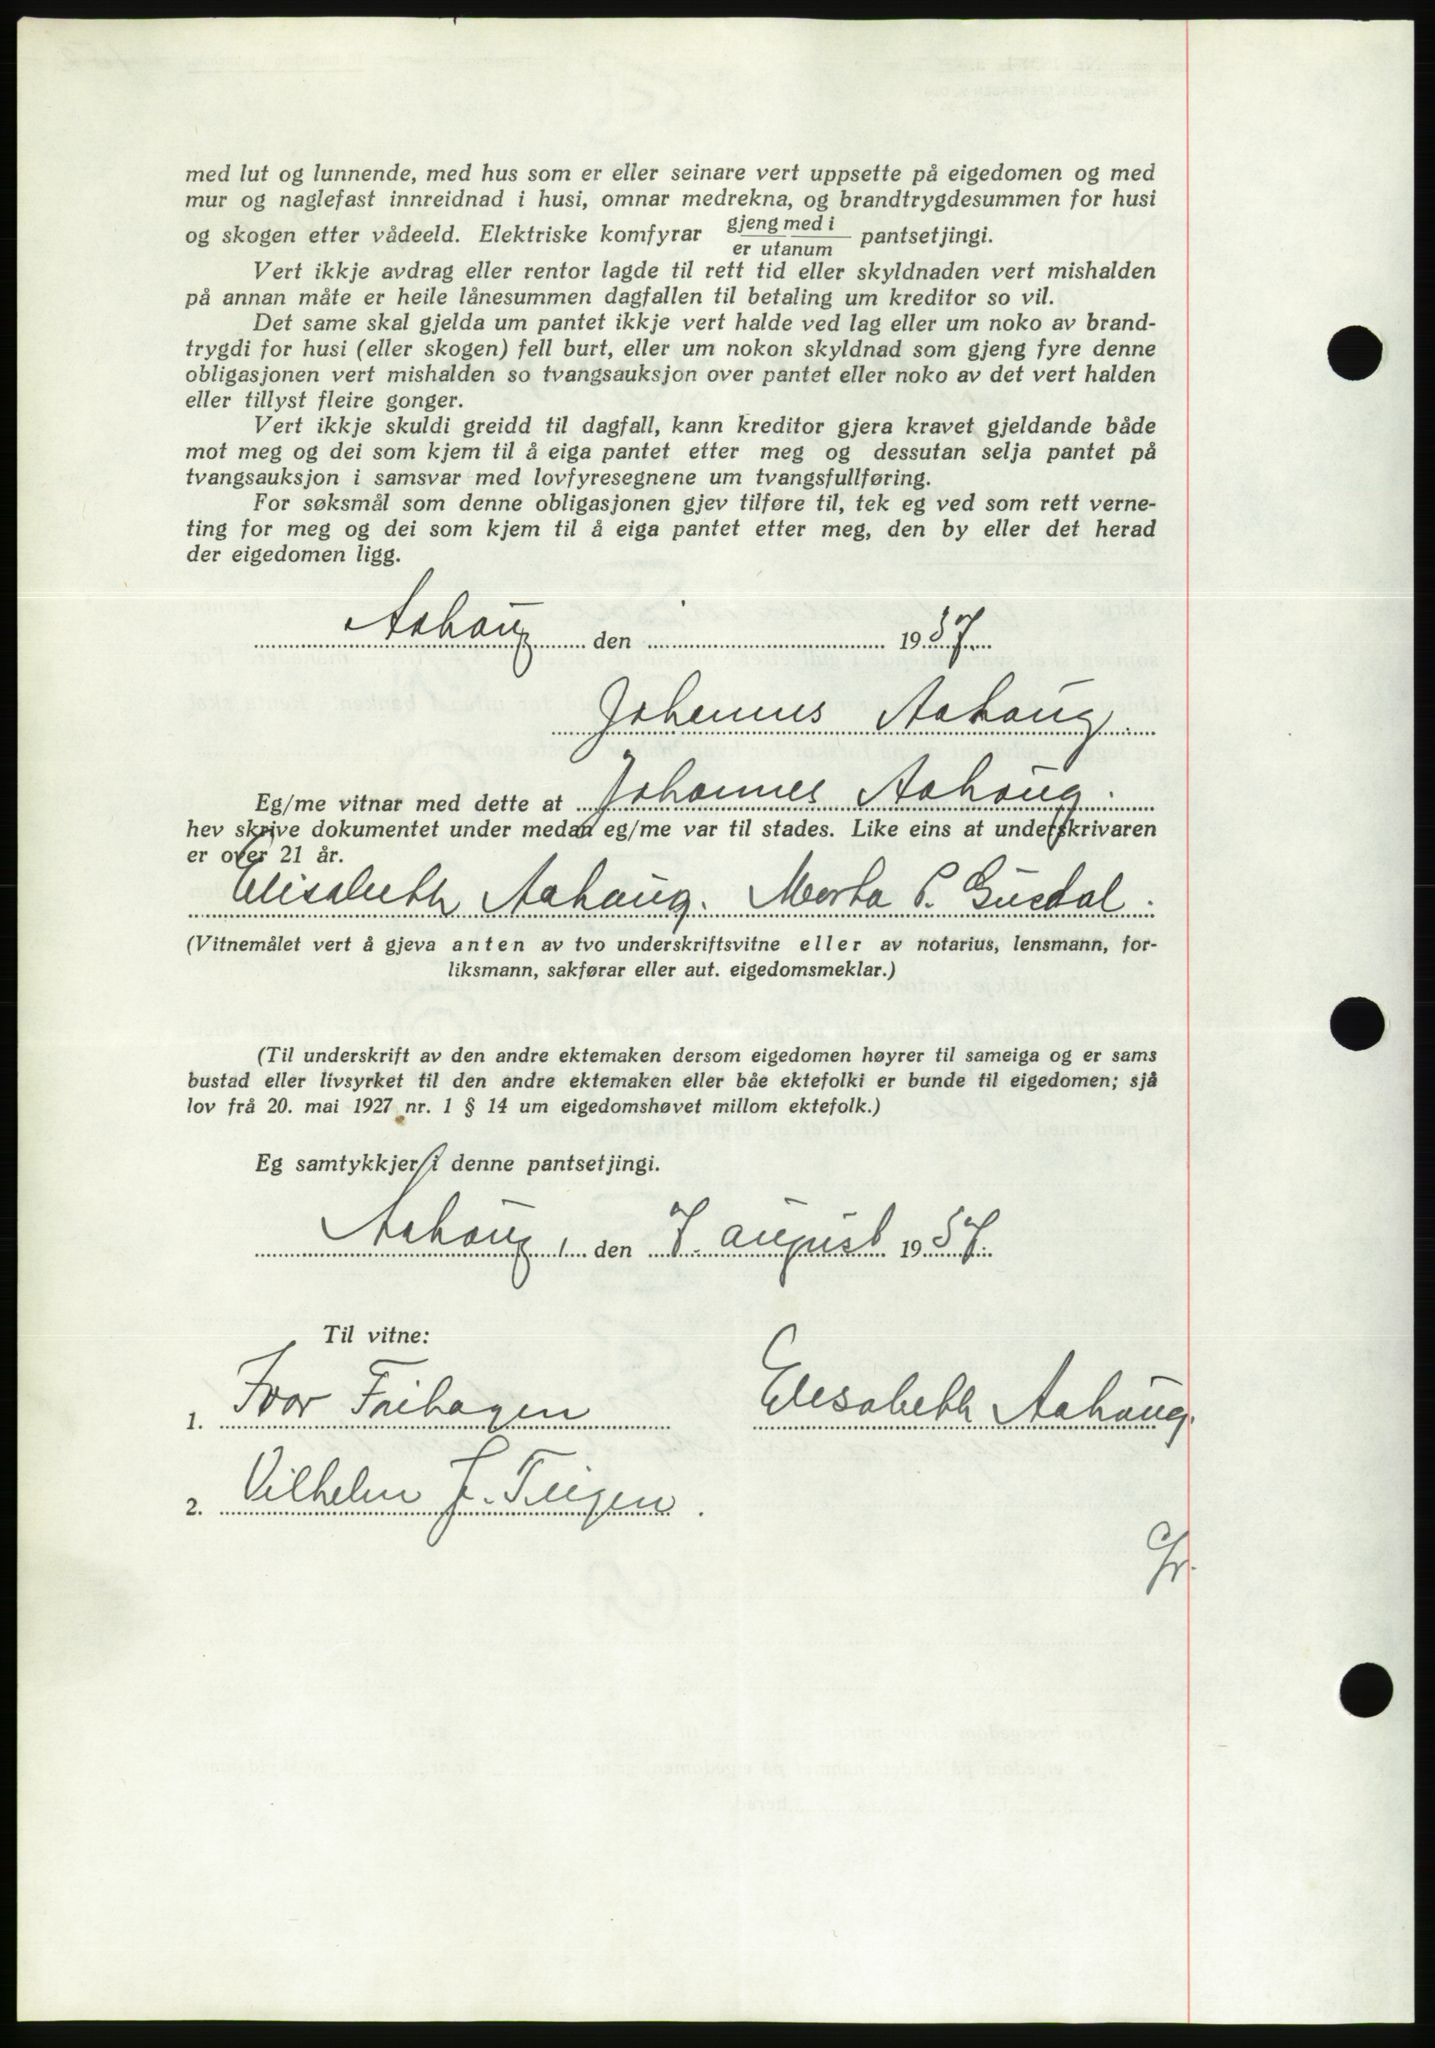 med lut og lunnende, med hus som er eller seinare vert uppsette på eigedomen og med
mur og naglefast innreidnad i husi, omnar medrekna, og brandtrygdesummen for husi
og skogen etter vådeeld. Elektriske komfyrar gjeng med i / er utanum pantsetjingi.
Vert ikkje avdrag eller rentor lagde til rett tid eller skyldnaden vert mishalden
på annan måte er heile lånesummen dagfallen til betaling um kreditor so vil.
Det same skal gjelda um pantet ikkje vert halde ved lag eller um noko av brand-
trygdi for husi (eller skogen) fell burt, eller um nokon skyldnad som gjeng fyre denne
obligasjonen vert mishalden so tvangsauksjon over pantet eller noko av det vert halden
eller tillyst fleire gonger.
Vert ikkje skuldi greidd til dagfall, kann kreditor gjera kravet gjeldande både
mot meg og dei som kjem til å eiga pantet etter meg og dessutan selja pantet på
tvangsauksjon i samsvar med lovfyresegnene um tvangsfullføring.
For søksmål som denne obligasjonen gjev tilføre til, tek eg ved som rett verne-
ting for meg og dei som kjem til å eiga pantet etter meg, den by eller det herad
der eigedomen ligg.
Aahaug den 1937
Johannes Aahaug.
Eg/me vitnar med dette at Johannes Aahaug.
hev skrive dokumentet under medan eg/me var til stades. Like eins at underskrivaren
er over 21 år.
Elisabeth Aahaug. Marta P. Gusdal.
(Vitnemålet vert å gjeva anten av tvo underskriftsvitne eller av notarius, lensmann, for-
liksmann, sakførar eller aut. eigedomsmeklar.)
(Til underskrift av den andre ektemaken dersom eigedomen høyrer til sameiga og er sams
bustad eller livsyrket til den andre ektemaken eller båe ektefolki er bunde til eigedomen; sjå
lov frå 20. mai 1927 nr. 1 § 14 um eigedomshøvet millom ektefolk.)
Eg samtykkjer i denne pantsetjingi.
Aahaug, den 7. august 1937.
Til vitne:
1. Ivar Frihagen Elisabeth Aahaug.
2. Vilhelm J. Teigen.